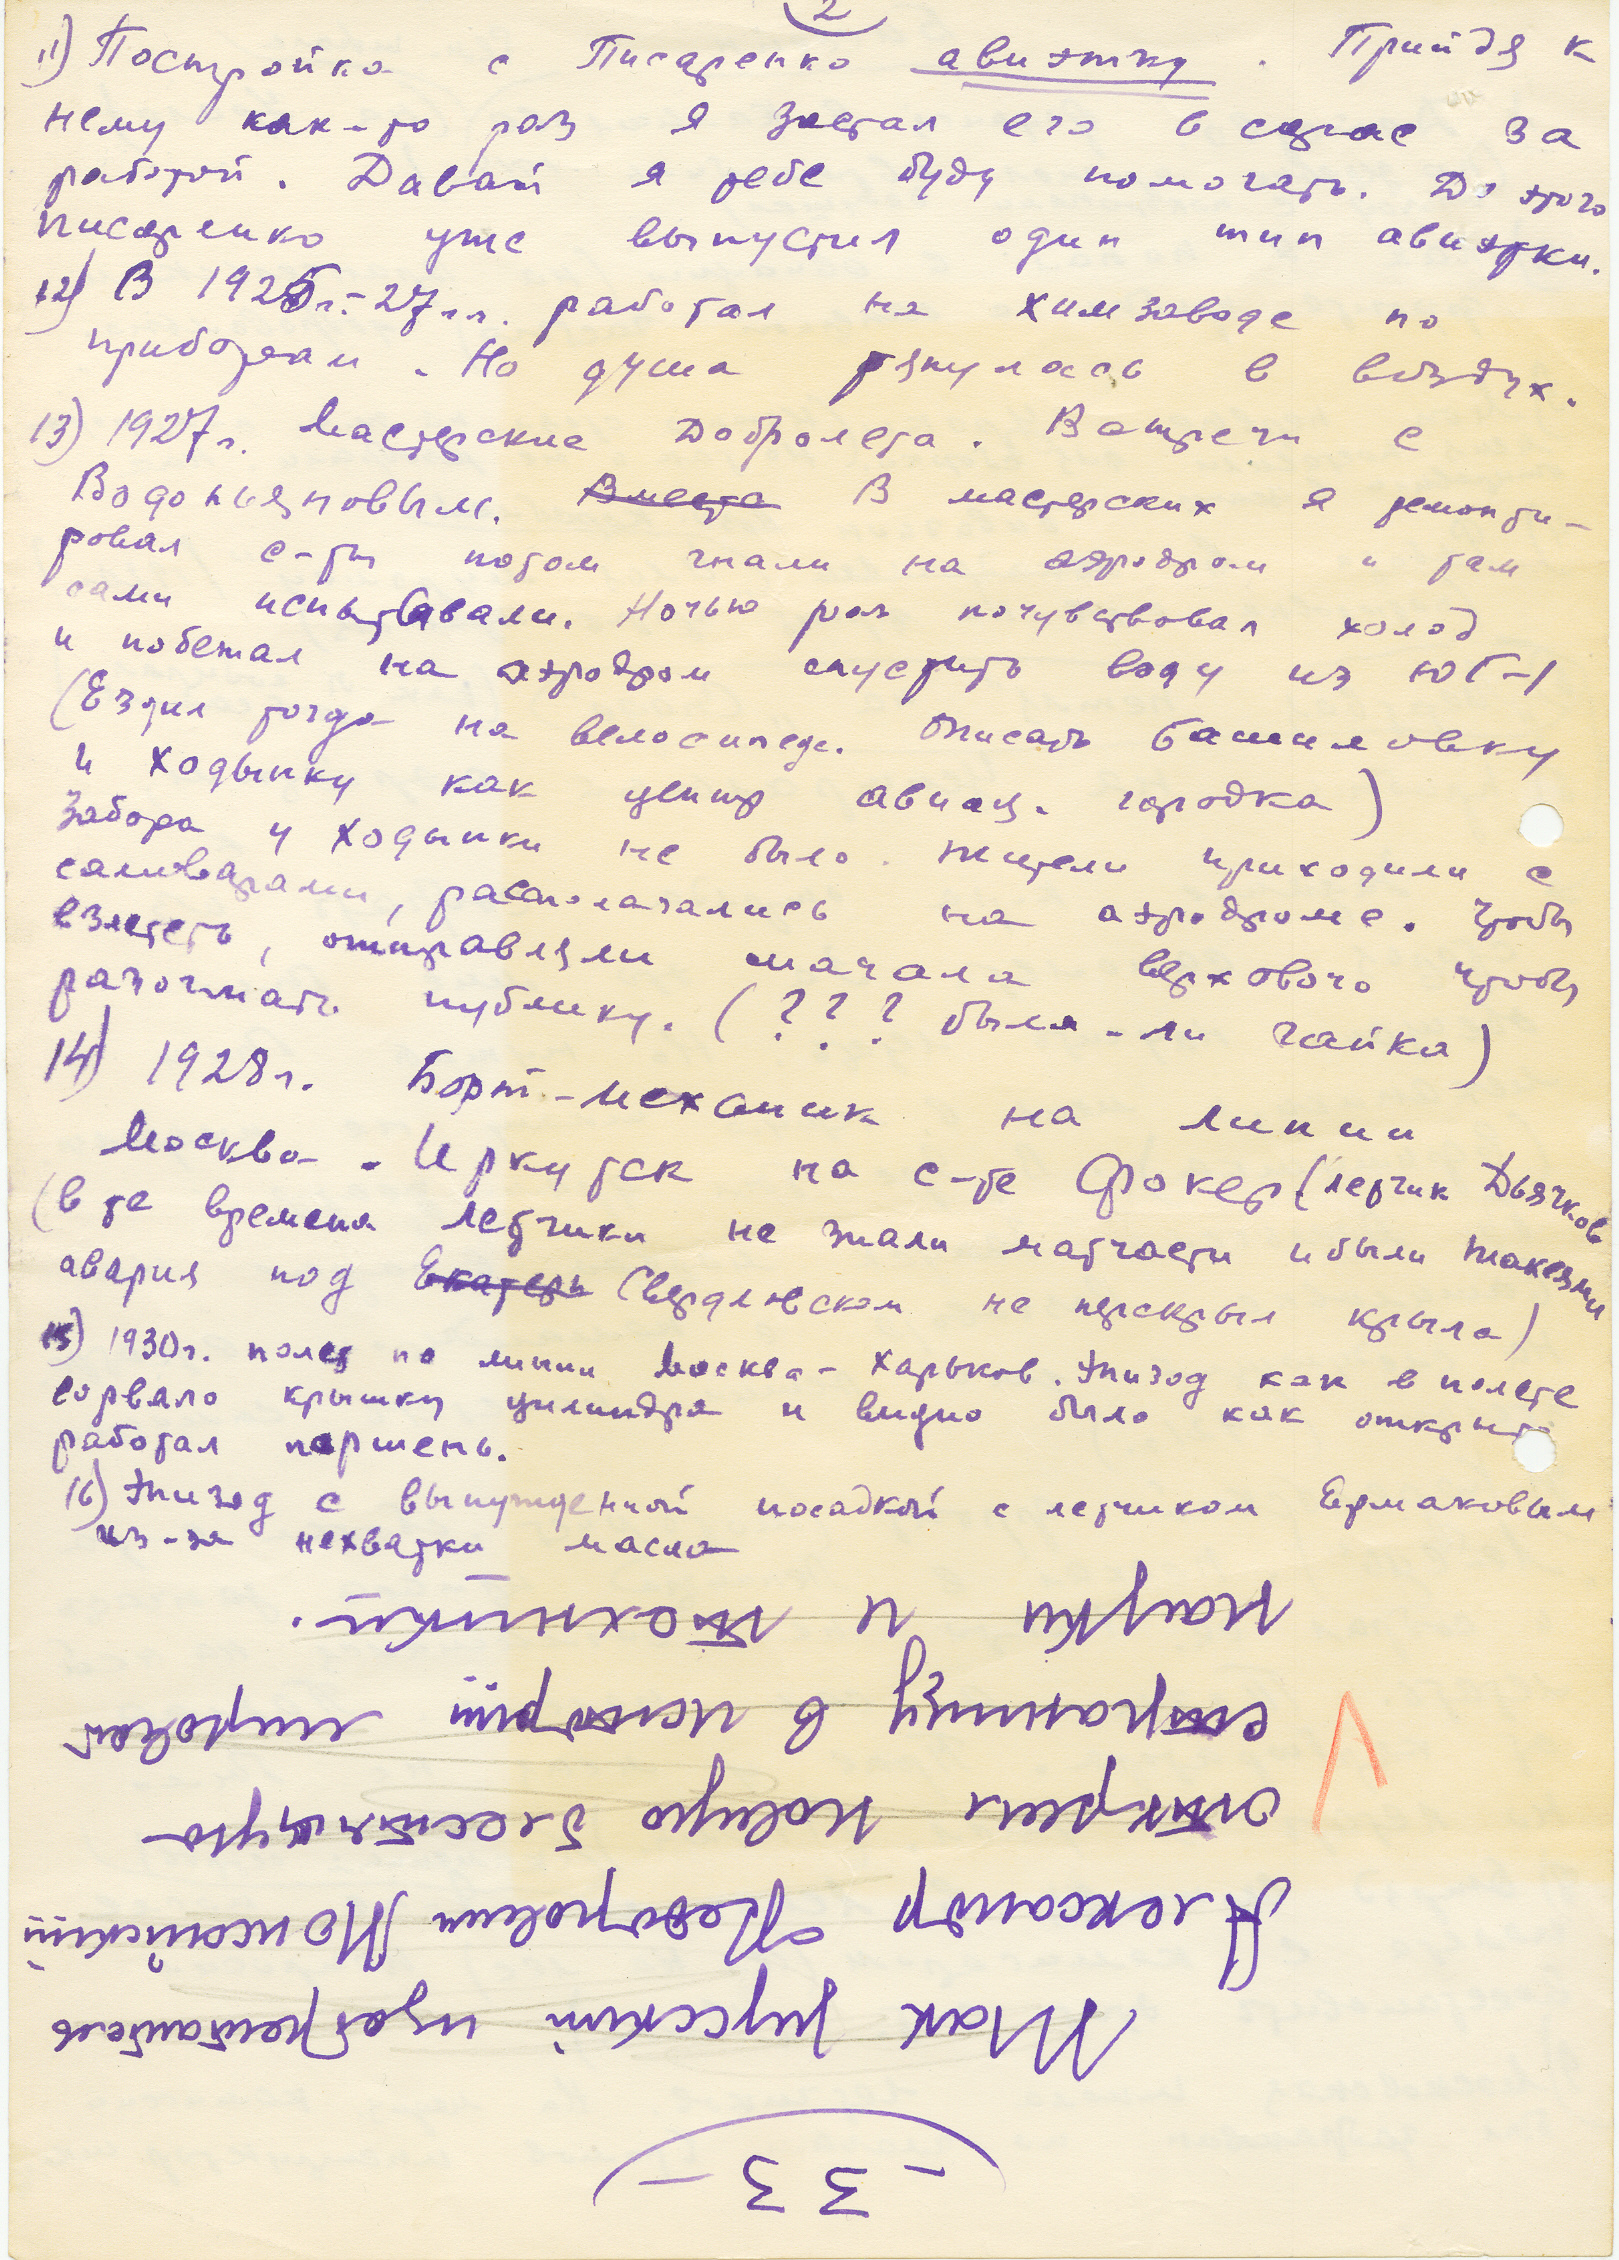 2
11) Постройка с Писаренко авиэтку. Прийдя к
нему как-то раз я застал его в сарае за
работой. Давай я тебе буду помогать. До этого
Писаренко уже выпустил один тип авиэтки.
12) В 1925г.-27г.г. работал на химзаводе по
приборам. Но душа рвнулась в воздух.
13) 1927г. Мастерские Добролета. Встречи с
Водопьяновым. Вместо В мастерских я ремонти-
ровал с-ты потом гнали на аэродром и там
сами испытывали. Ночью раз почувствовал холод
и побежал на аэродром спустить воду из ЮГ-1
(Ездил тогда на велосипеде. Описать Башиловку
и Ходынку как центр авиац. городка)
Забора у Ходынки не было. Жители приходили с
самоварами, располагались на аэродроме. Чтобы
взлететь, отправляли сначала верхового чтобы
разогнать публику. (??? была-ли чайка)
14) 1928г. Борт-механик на линии
Москва-Иркутск на с-те Фокер (летчик Дьячков
(в те времена летчики не знали матчасти и были такими
авария под Екатерн Свердловском не перекрыл крыла)
15) 1930г. полет по линии Москва-Харьков. Эпизод как в полете
сорвало крышку цилиндра и видно было как открыто
работал поршень.
16) Эпизод с вынужденной посадкой с летчиком Ермаковым
из-за нехватки масла
-33-
Так русский изобретатель
Александр Федорович Можайский
открыл новую блестящую
страницу в истории мировой
науки и техники.